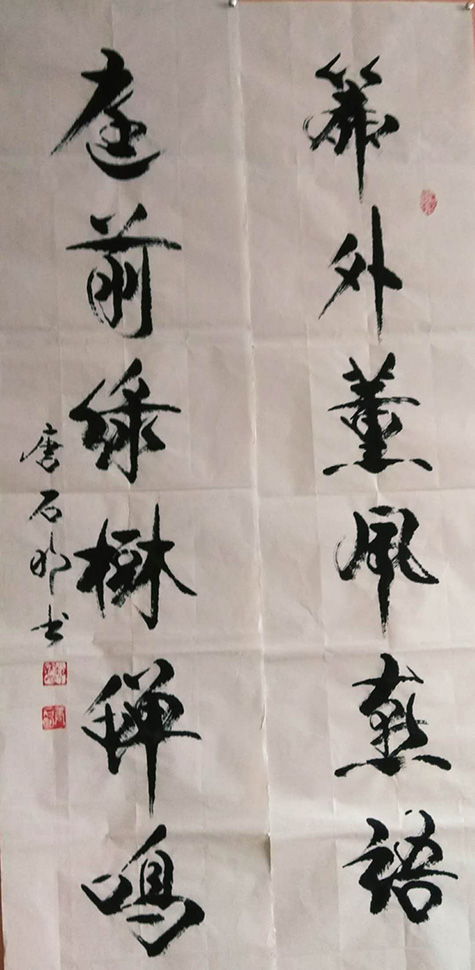 簾外薰風燕語
庭前綠樹蟬鳴
唐石明书